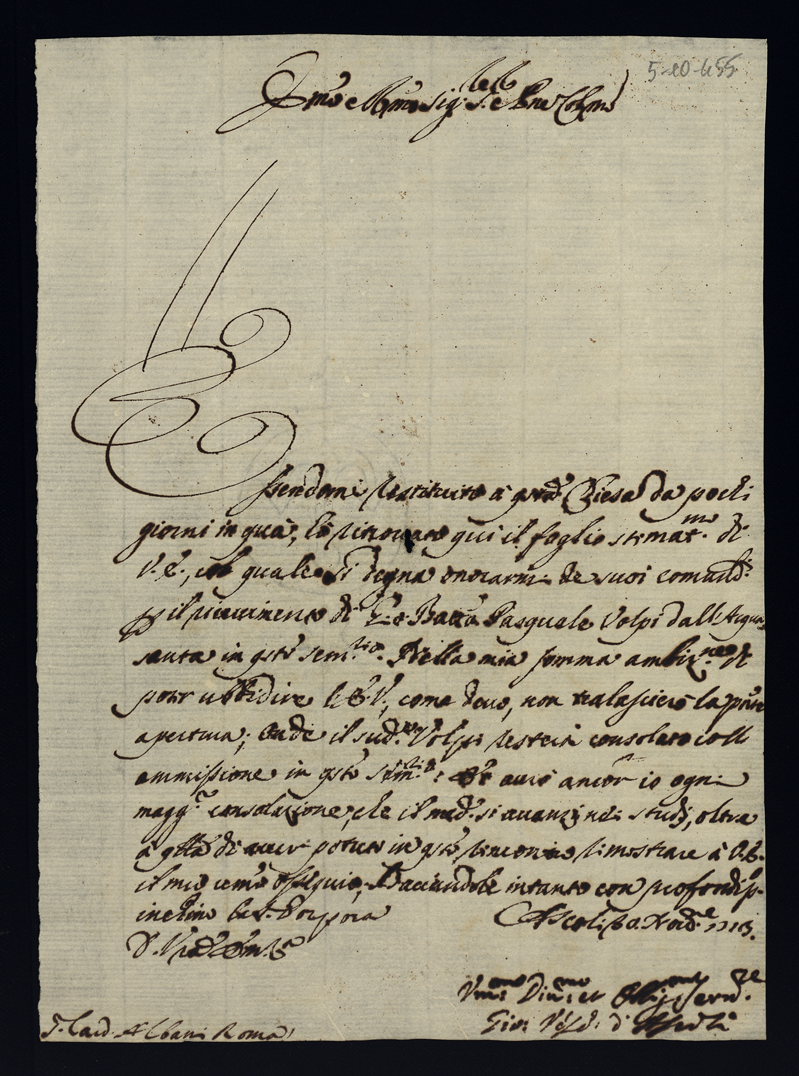 5-10-655
Em̃o e R̃mo Sig.re e P̃ne Col̃mo
Essendomi restituito à q̃sta Chiesa da pochi
giorni in quà, hò ritrovato qui il foglio stimat.mo di
V.E., col quale si degna onorarmi de suoi comandi
il ricevimento di Batt̃a Pasquale Volpi dall'Acqua
santa in q̃sto Sem.rio. Nella mia somma ambiz.ne di
poter ubbidire l'E.V., come devo, non tralascierò la p̃ma
apertura; onde il sud.o Volpi resterà consolato coll
ammissione in q̃sto Sem.rio: avrò ancor io ogni
magg.r consolazione, che il med.o si avanzi ne studi, oltre
à q̃lla di aver potuto in q̃sto rincontro dimostrare à V.E.
il mio ossequio; Baciandole intanto con profondiss.
inchino la S. Porpora
Ascoli 1713.
D. Ṽra Em̃za
Um̃o Diṽmo et Obblig̃mo Serv.re
Gio: Vesc. d'Ascoli
S. Card. Albani Roma